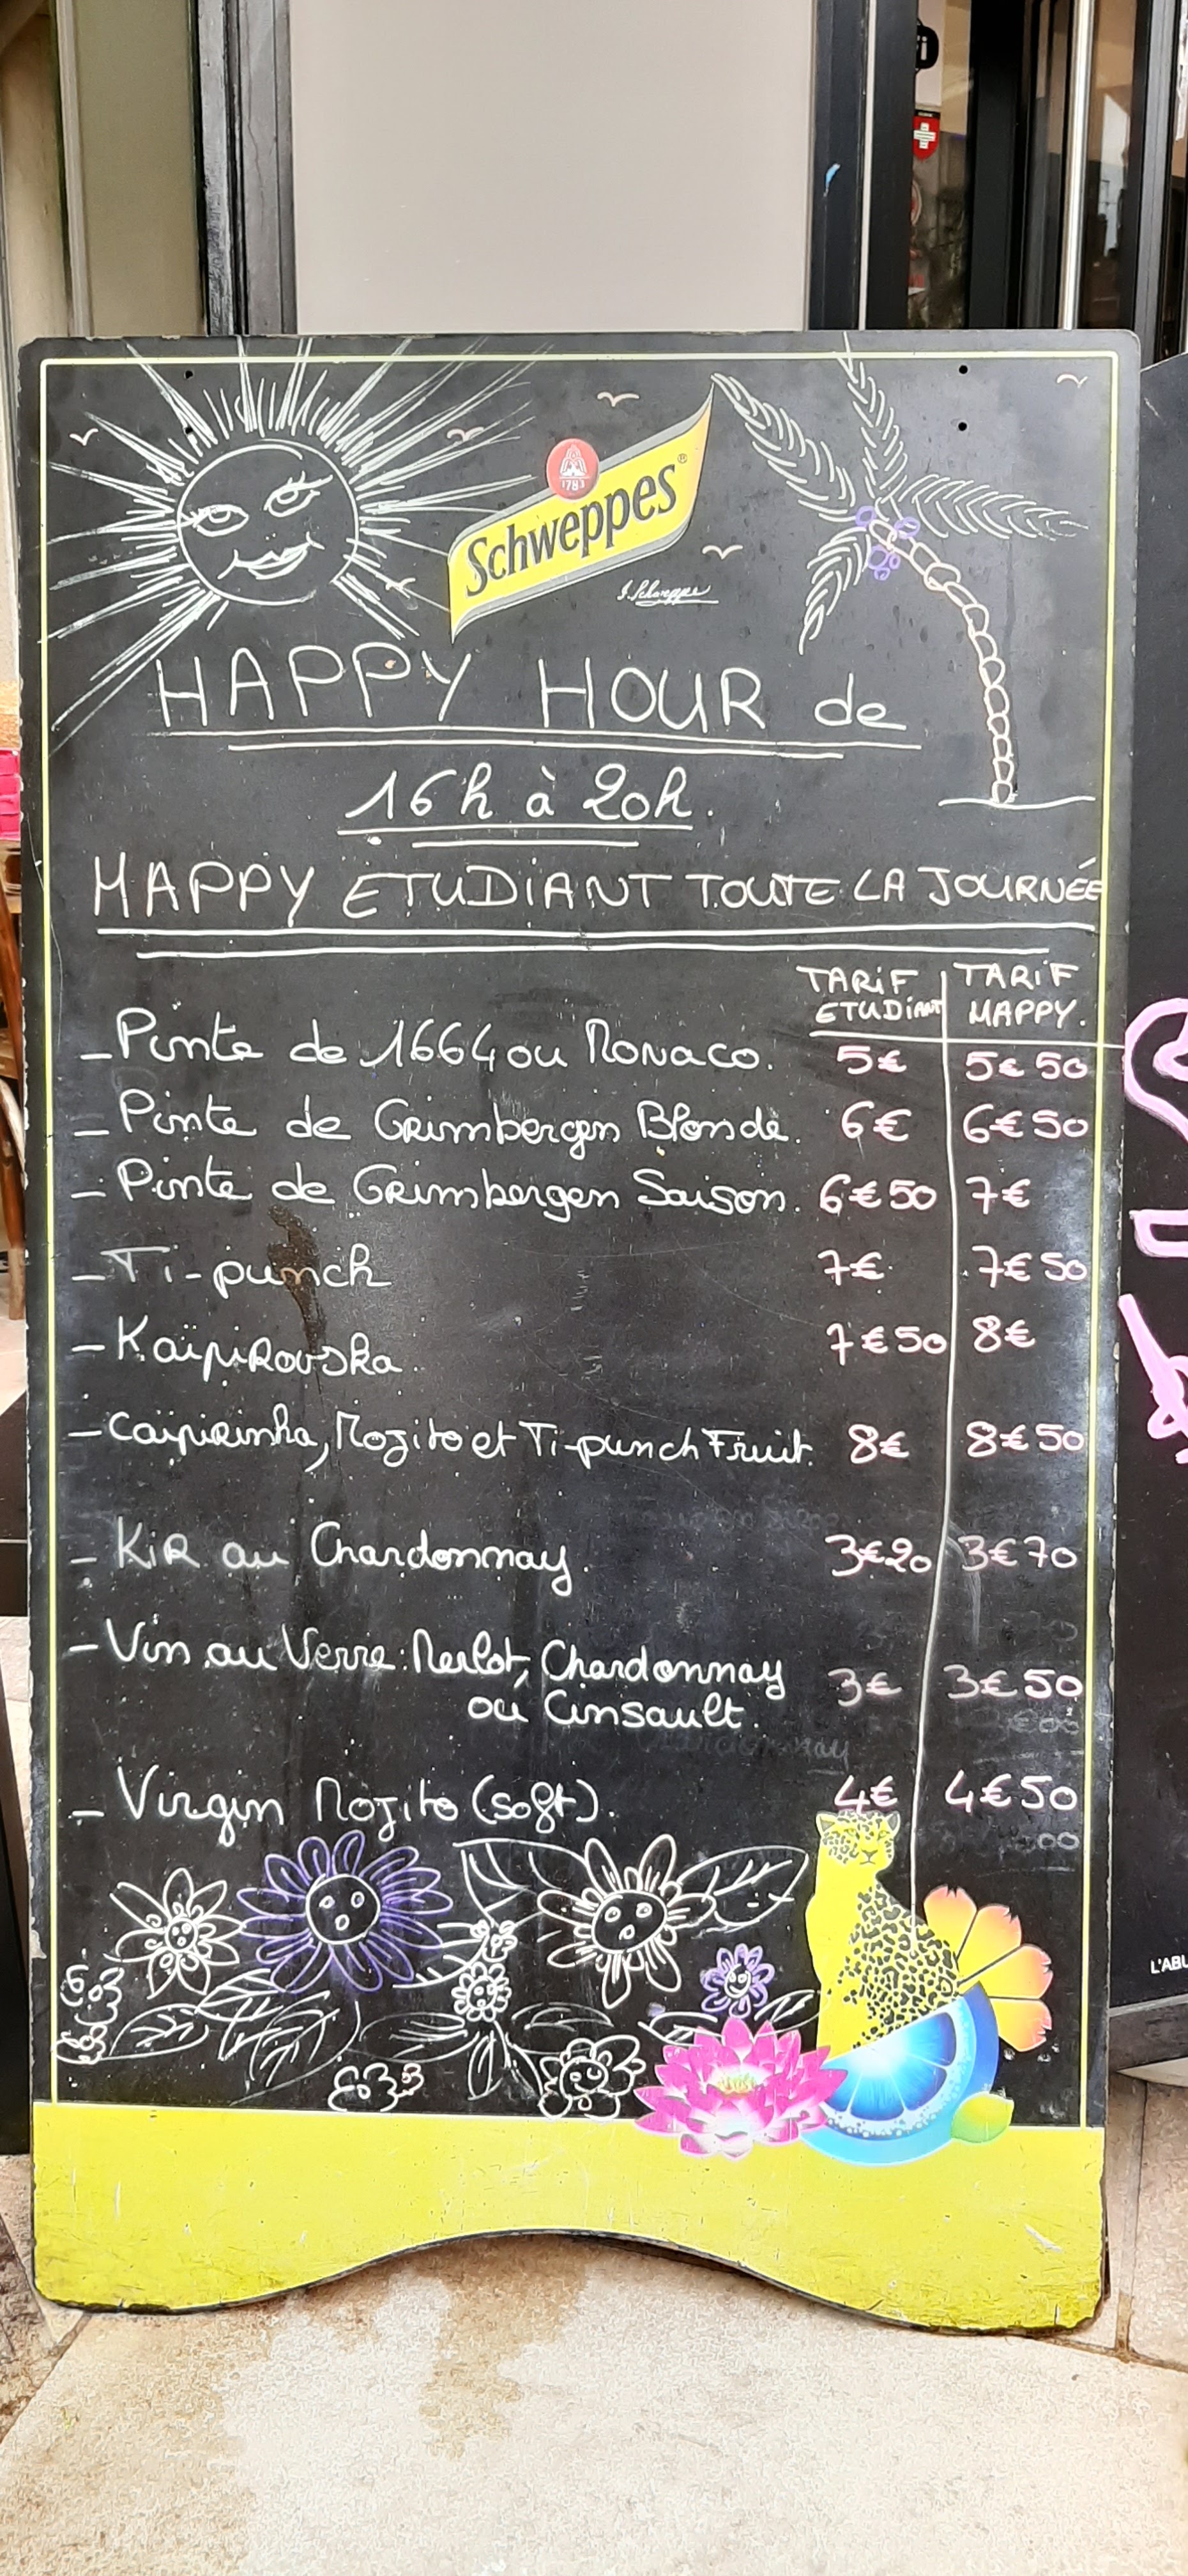 1783
Schweppes®
J. Schweppe
HAPPY HOUR de
16h à 20h.
HAPPY ETUDiANT TOUTE LA JOURNÉE
TARiF ETUDiANT
TARiF HAPPY.
- Pinte de 1664 ou Monaco. 5€ 5€50
- Pinte de Grimbergen Blonde. 6€ 6€50
- Pinte de Grimbergen Saison. 6€50 7€
- Ti-punch 7€ 7€50
- Kaïpirovska. 7€50 8€
- Caïpirinha, Mojito et Ti-punch Fruit. 8€ 8€50
- KiR au Chardonnay. 3€20 3€70
- Vin au Verre: Merlot, Chardonnay
ou Cinsault. 3€ 3€50
- Virgin Mojito (soft). 4€ 4€50
L'ABU